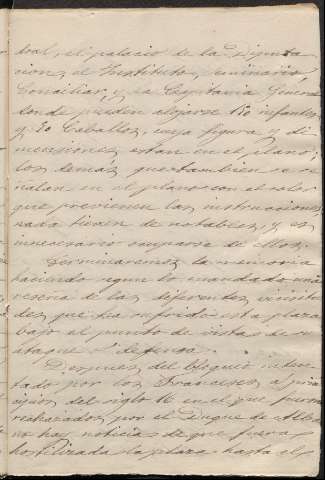 dral, el palacio de la Diputa
cion, el Instituto, seminario
Conciliar, y la Capitania General
donde pueden alojarse 150 infantes
y 20 Caballos, cuya figura y di
mensiones estan en el plano;
los demás que tambien se se
ñalan en el plano con el color
que previenen las instrucciones
nada tienen de notables, y es
innecesario ocuparse de ellos.
Terminaremos la memoria
haciendo segun lo mandado una
reseña de las diferentes vicisitu
des que ha sufrido esta plaza
bajo el punto de vista de su
ataque y defensa.
Despues del bloqueo inten
tado por los Franceses a prin
cipios del siglo 16 en el que fueron
rechazados por el Duque de Alba
no hay noticias de que fuera
hostilizada la plaza hasta el